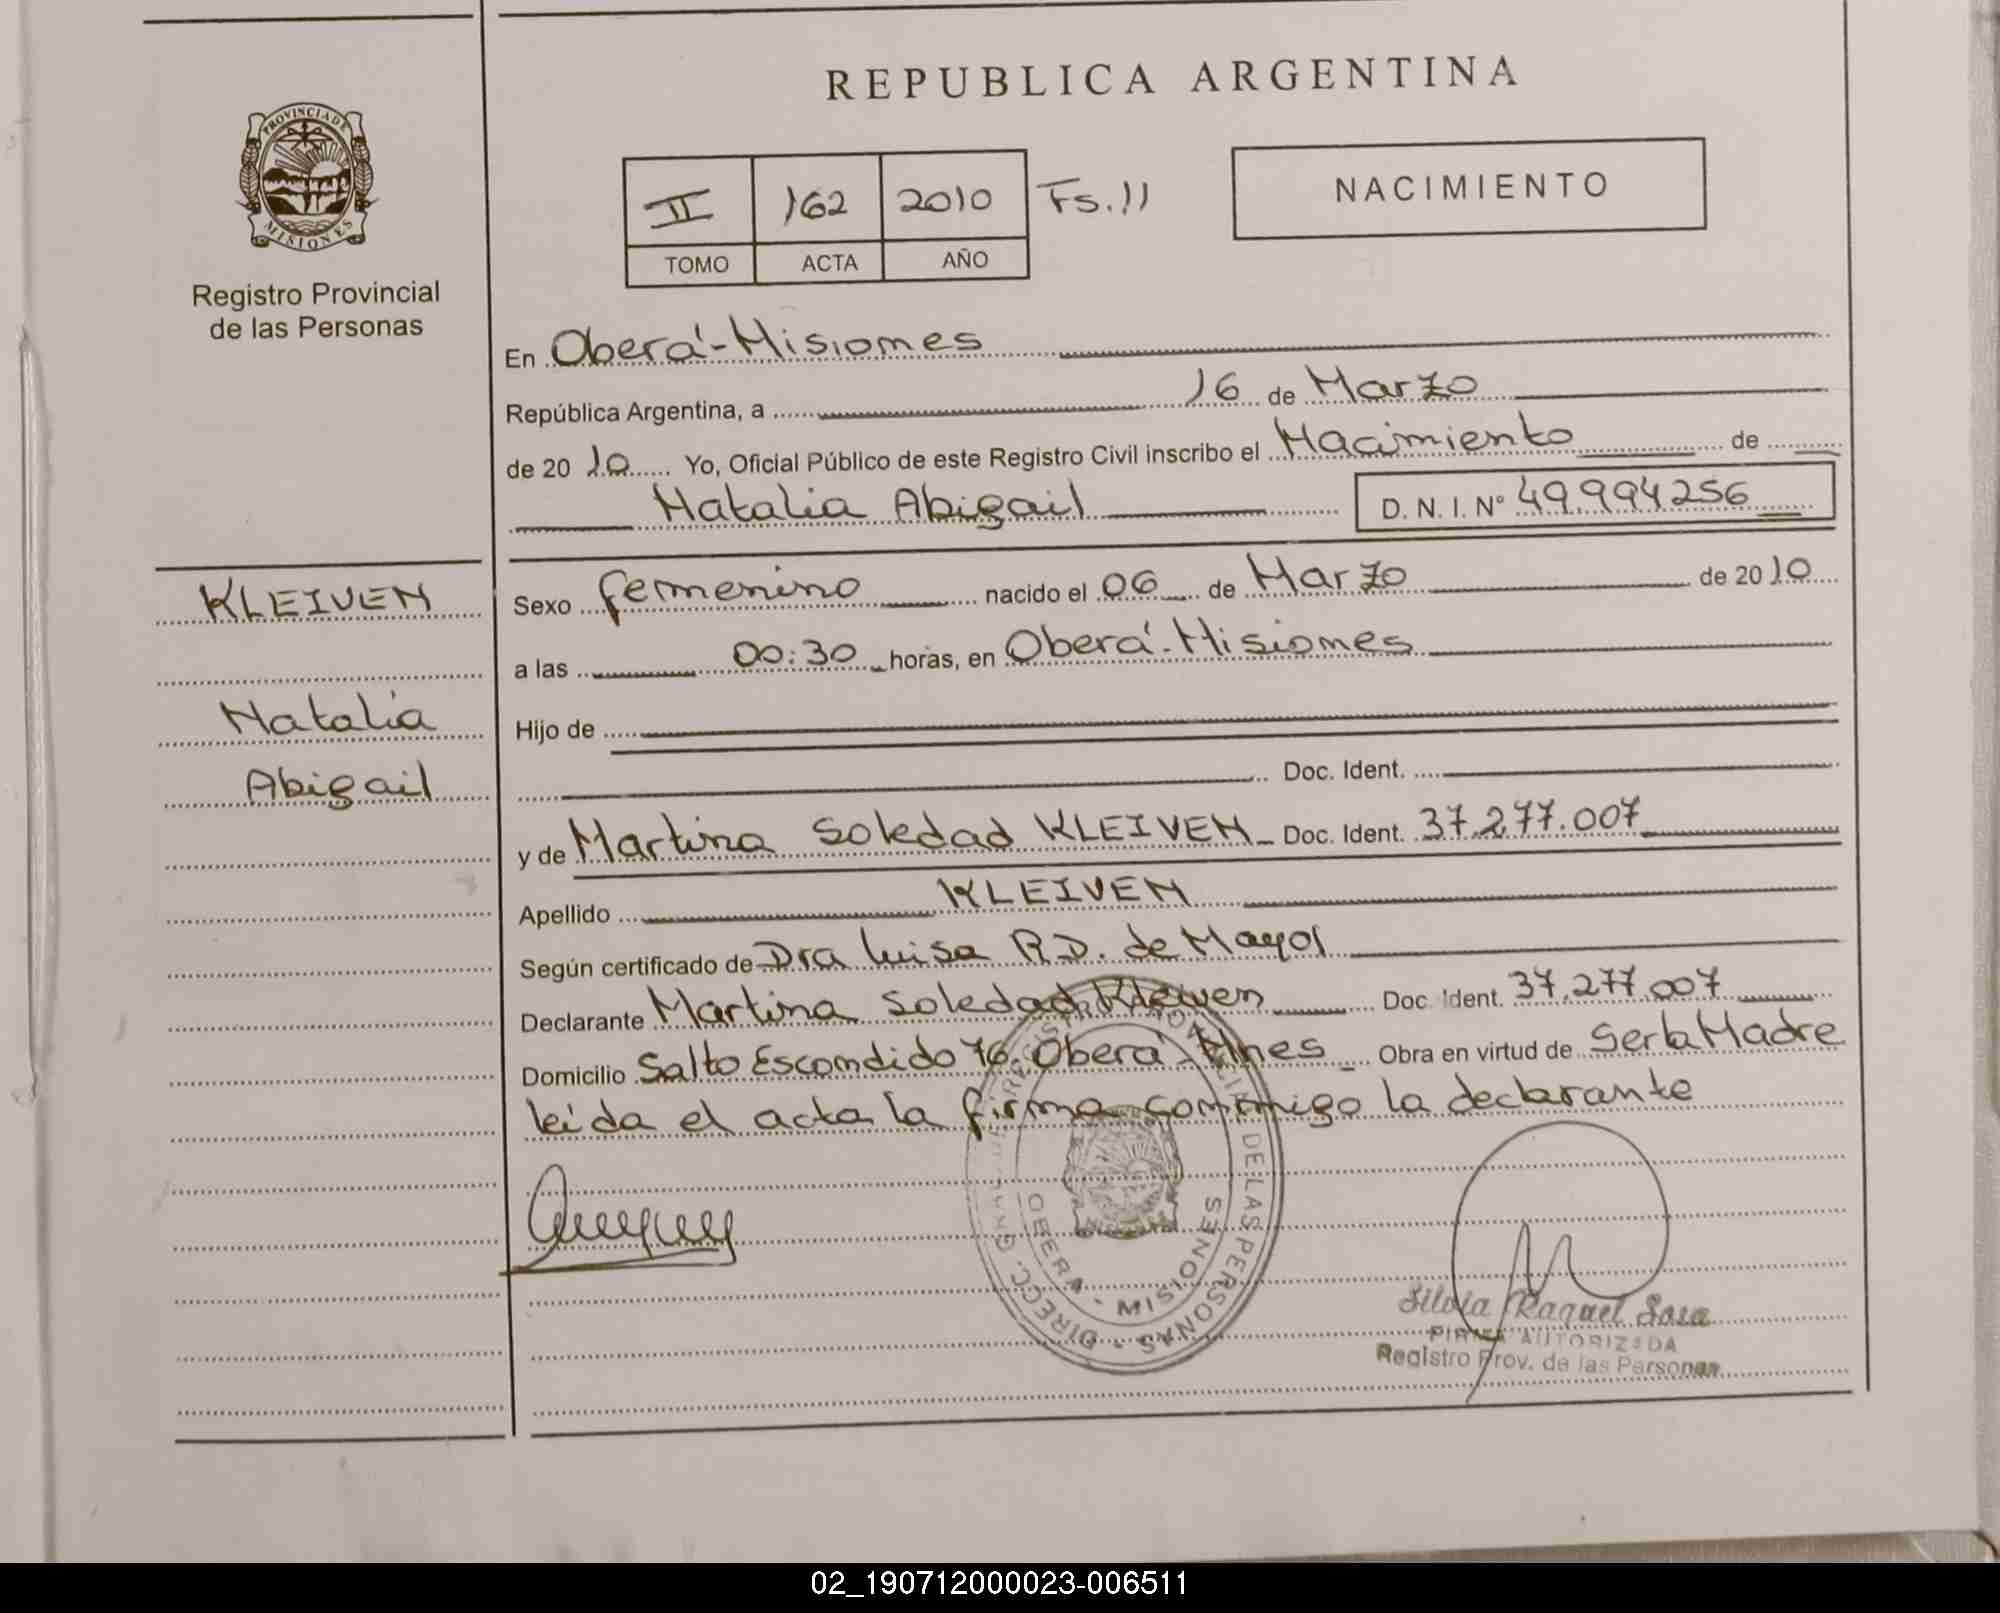 REPUBLICA ARGENTINA
PROVINCIA DE
MISIONES
Registro Provincial
de las Personas
II 162 2010 Fs. 11
TOMO ACTA AÑO
NACIMIENTO
En Oberá-Misiones
República Argentina, a 16 de Marzo
de 20 10 Yo, Oficial Público de este Registro Civil inscribo el Nacimiento de
Natalia Abigail D. N. I. Nº 49.994256
KLEIVEN
Natalia
Abigail
Sexo femenino nacido el 06 de Marzo de 20 10
a las 00:30 horas, en Oberá-Misiones
Hijo de
Doc. Ident.
y de Martina Soledad KLEIVEN Doc. Ident. 37.277.007
Apellido KLEIVEN
Según certificado de Dra Luisa R.D. de Mayol
Declarante Martina Soledad Kleiven Doc. Ident. 37.277.007
Domicilio Salto Escondido 76. Oberá-Mnes Obra en virtud de Ser la Madre
leída el acta la firma conmigo la declarante
DE LAS PERSONAS
OBERA - MISIONES
Silvia Raquel Sosa
FIRMA AUTORIZADA
Registro Prov. de las Personas
02_190712000023-006511